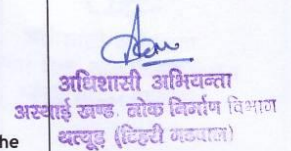 अधिशासी अभियन्ता
अस्थाई खण्ड, लोक निर्माण विभाग
थत्यूड़ (टिहरी गढ़वाल)
he